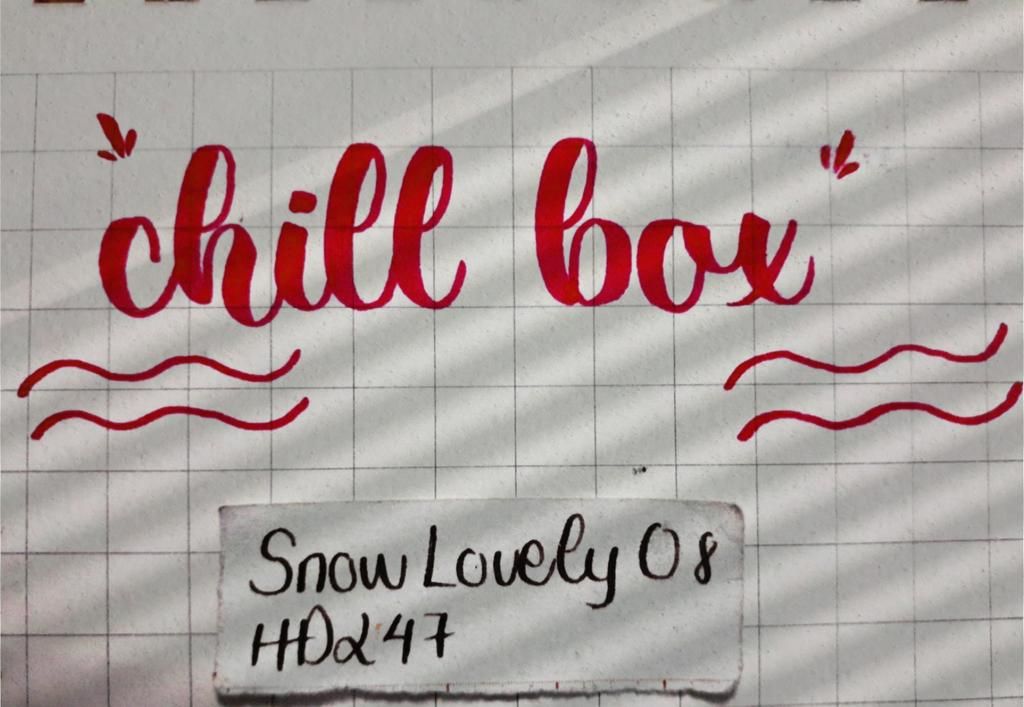 chill box
Snow Lovely 08
HDα47